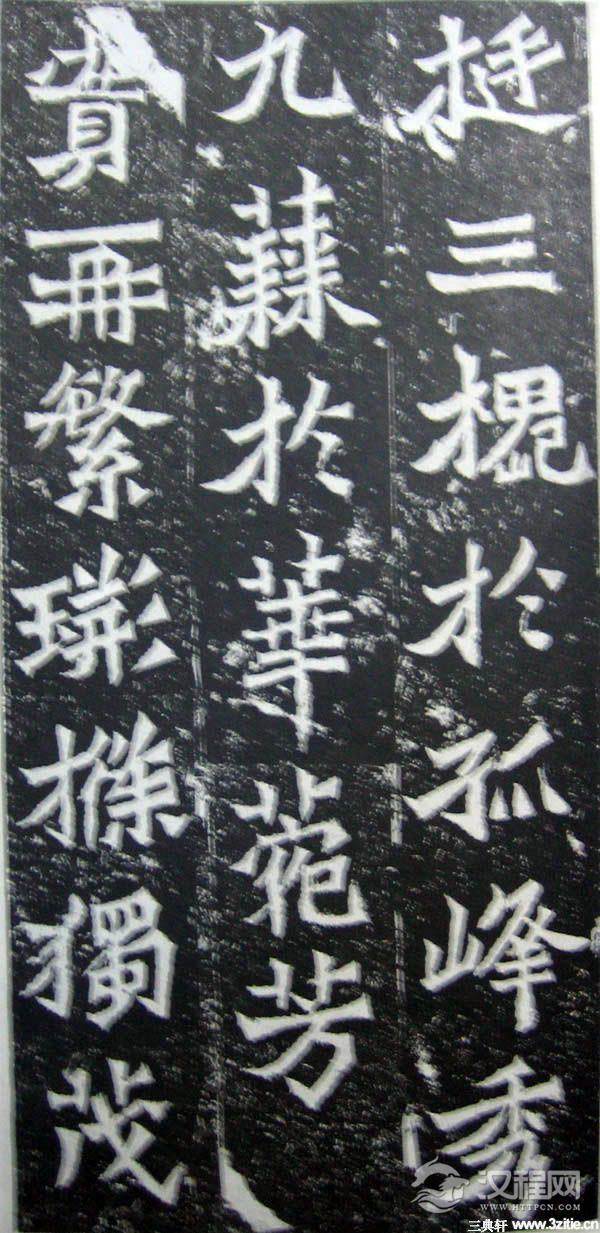 挺三槐於孤峰秀
九蕀於華菀芳
實再繁樤獨茂
汉程网
WWW.HTTPCN.COM
三典轩 www.3zitie.cn